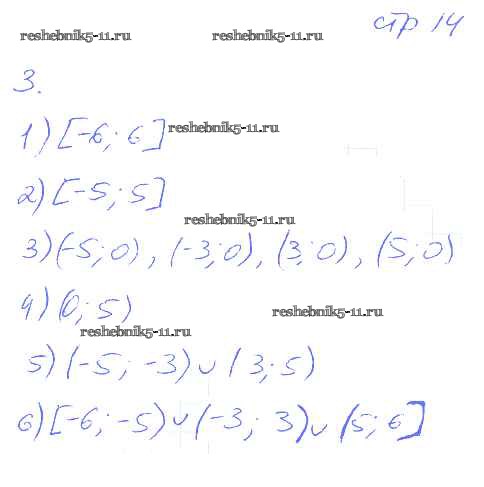 стр 14
reshebnik5-11.ru reshebnik5-11.ru
3.
1) [-6; 6] reshebnik5-11.ru
2) [-5; 5]
reshebnik5-11.ru
3) (-5; 0), (-3; 0), (3; 0), (5; 0)
4) (0; 5) reshebnik5-11.ru
reshebnik5-11.ru
5) (-5; -3) ∪ (3; 5)
6) [-6; -5) ∪ (-3; 3) ∪ (5; 6]